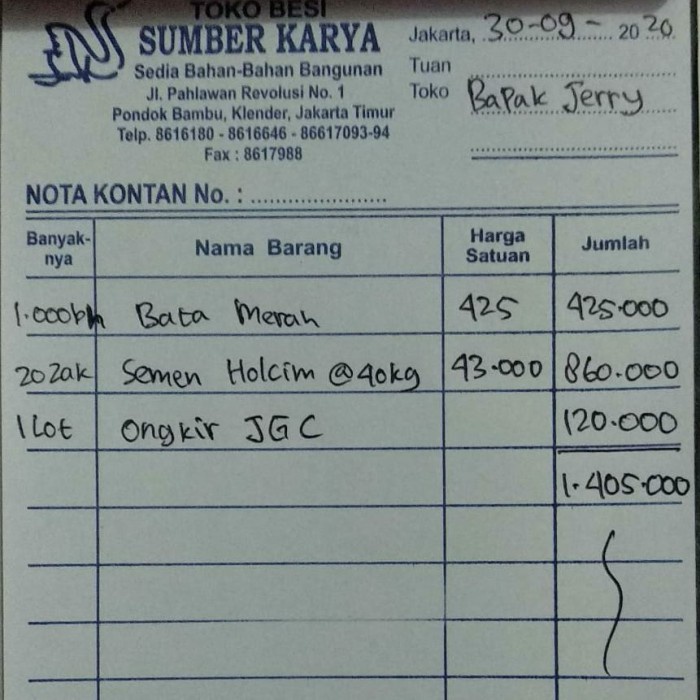 TOKO BESI
SUMBER KARYA
Sedia Bahan-Bahan Bangunan
Jl. Pahlawan Revolusi No. 1
Pondok Bambu, Klender, Jakarta Timur
Telp. 8616180 - 8616646 - 86617093-94
Fax : 8617988
Jakarta, 30-09- 2020
Tuan
Toko Bapak Jerry
NOTA KONTAN No. :
Banyak-nya Nama Barang Harga Satuan Jumlah
1.000bh Bata Merah 425 425.000
20 zak Semen Holcim @40kg 43.000 860.000
1 Lot Ongkir JGC 120.000
1.405.000